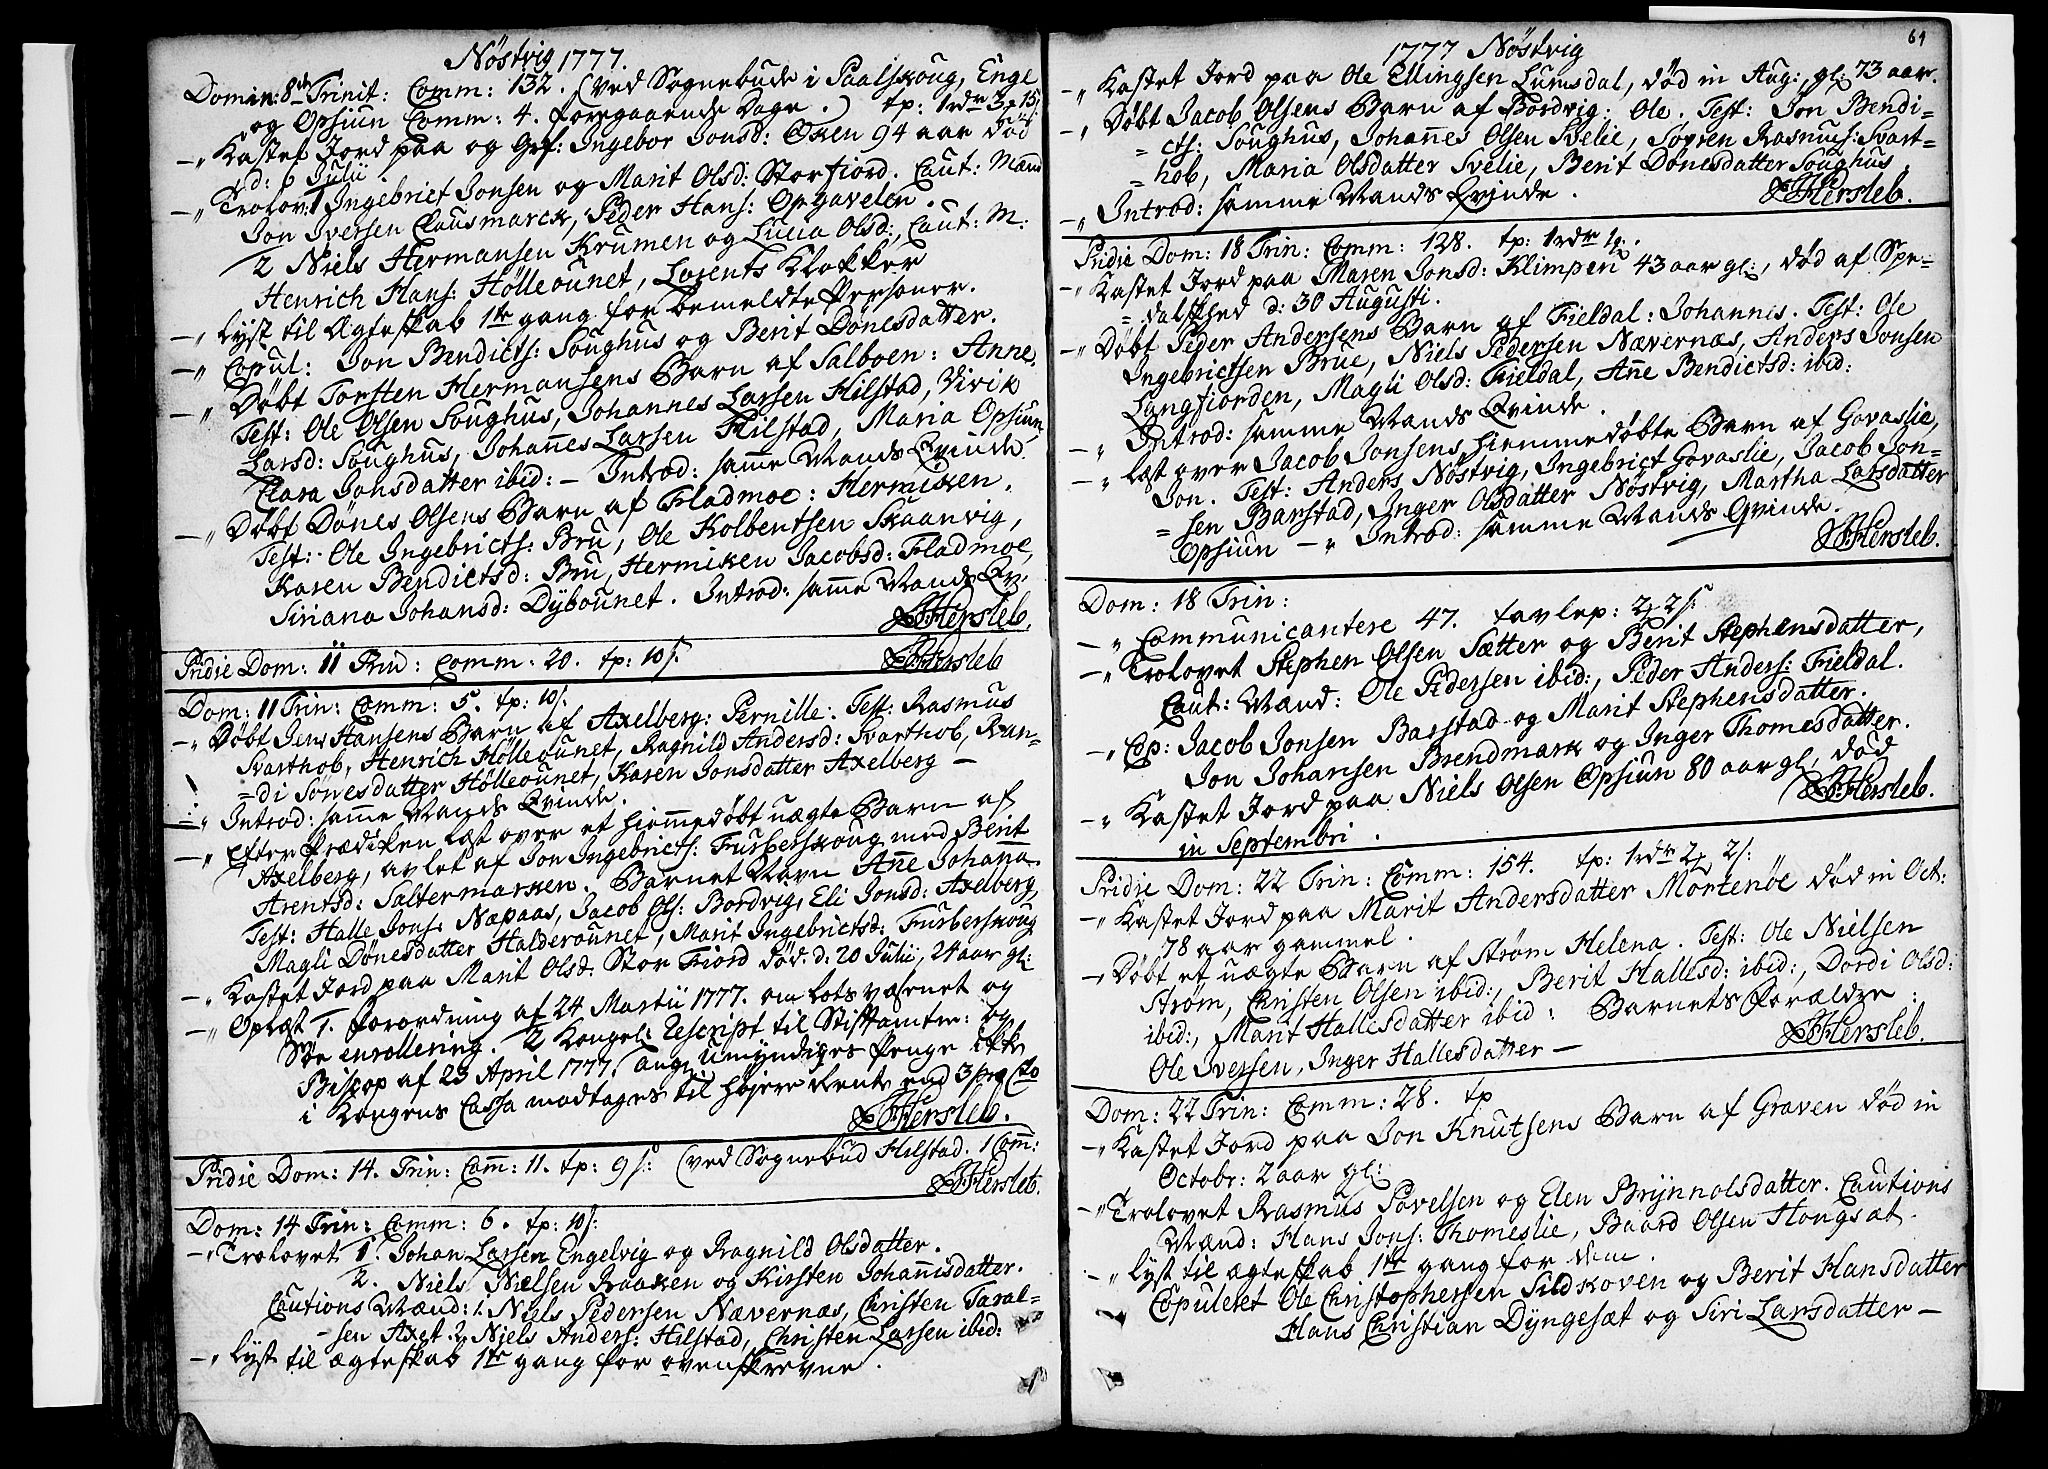 Nöstvig 1777.
Domin: 8de Trinit: Comm: 132. (ved Sognebude i Paalskoug, Enge
og Opsiun Comm: 4. foregaaende Dage.) tp: 1rdr 3
-" Kastet Jord paa og Grf: Ingebor Jonsd: Oxen 94 aar død
d: 6 Julii
-" Trolov: 1 Ingebrict Jonsen og Marit Olsd: Storfiord. Caut: Mænd
Jon Iversen Clausmarck, Peder Hans: Opgavelen.
2 Niels Hermansen Krumen og Lucia Olsd:, Caut: M:
Henrich Hans: Hölleounet, Lorents Klokker
-" Lyst til Ægteskab 1te gang for bemeldte Personer.
-" Copul: Jon Bendicts: Soughus og Berit Dönesdatter.
-" Döbt Torsten Hermansens Barn af Salboen: Anne.
Test: Ole Olsen Soughus, Johannes Larsen Hilstad, Virik
Larsd: Soughus, Johannes Larsen Hilstad, Maria Opsiun,
Clara Johsdatter ibid: - Introd: samme Mands Qvinde.
-" Döbt Dönes Olsens Barn af Fladmoe: Hermiken.
Test: Ole Ingebricts: Bru, Ole Kolbentsen Skaanvig,
Karen Bendictsd: Bru, Hermiken Jacobsd: Fladmoe,
Siriana Johansd: Dybounet. Introd: samme Mands Qv:
Hersleb.
Pridie Dom: 11 Trin: Comm: 20. tp: 10 s:
Hersleb
Dom: 11 Trin: Comm: 5. tp: 10 s:
-" Döbt Jens Hansens Barn af Axelberg: Pernille. Test: Rasmus
Svarthob, Henrich Hölleounet, Ragnild Andersd: Svarthob, Ran=
=di Sönesdatter Hölleounet, Karen Jonsdatter Axelberg -
-" Introd: samme Mands Qvinde.
-" Efter Prædiken læst over et hiemmedöbt uægte Barn af
Axelberg, avlet af Jon Ingebricts: Furberskoug med Berit
Arentsd: Saltermarken. Barnet Navn Anne Johanna.
Test: Halle Jons: Næpaas, Jacob Ols: Bordvig, Eli Jonsd: Axelberg,
Magli Dönesdatter Halderounet, Marit Ingebrictsd: Furberskoug
-" Kastet Jord paa Marit Olsd: Stor Fiord død d: 20 Julii, 24 aar gl:
-" Oplæst 1. Forordning af 24 Martii 1777. om Lots væsenet og
Söe enrollering. 2 Kongel: Rescript til Stiftamtm: og
Biscop af 23 April 1777, ang: umyndiges Penge ikke
i Kongens Cassa modtages til höjere Rente end 3 prg Cto
Hersleb.
Pridie Dom: 14. Trin: Comm: 11. tp: 9 s: (ved Sognebud Hilstad. 1 Comm:
Hersleb.
Dom: 14 Trin: Comm: 6. tp: 10 s:
-" Trolovet 1. Johan Larsen Engelvig og Ragnild Olsdatter.
2. Niels Nielsen Kraaken og Kirsten Johannisdatter.
Cautions Mænd: 1. Niels Pedersen Nævernæs, Christen Taral=
=sen Axet. 2 Niels Anders: Hilstad, Christen Larsen ibid:
-" Lyst til ægteskab 1te gang for ovenskrevne.
64
1777 Nöstvig
-" Kastet Jord paa Ole Ellingsen Lumsdal, død in Aug:, gl: 73 aar.
-" Döbt Jacob Olsens Barn af Bordvig: Ole. Test: Jon Bendi=
=cts: Soughus, Johannes Olsen Svelie, Sören Rasmus: Svart=
=hob, Maria Olsdatter Svelie, Berit Dönesdatter Soughus.
-" Introd: samme Mands Qvinde.
Hersleb.
Pridie Dom: 18 Trin: Comm: 128. tp: 1rdr
-" Kastet Jord paa Maren Jonsd: Klimpen 43 aar gl:, død af Spe=
=dalskhed d: 30 Augusti.
-" Döbt Peder Andersens Barn af Fieldal: Johannis. Test: Ole
Ingebrictsen Brue, Niels Pedersen Nævernæs, Anders Jonsen
Langfiorden, Magli Olsd: Fieldal, Anne Bendictsd: ibid:
-" Introd: samme Mands Qvinde.
-" Læst over Jacob Jonsens hiemmedöbte Barn af Govaslie,
Jon. Test: Anders Nöstvig, Ingebrict Govaslie, Jacob Jon=
=sen Barstad, Inger Olsdatter Nöstvig, Martha Larsdatter
Opsiun -" Introd: samme Mands Qvinde.
Hersleb.
Dom: 18 Trin:
-" Communicantere 47. tavlep: 2 2 s:
-" Trolovet Stephen Olsen Sætter og Berit Stephensdatter,
Caut: Mænd: Ole Pedersen ibid:, Peder Anders: Fieldal.
-" Cop: Jacob Jonsen Barstad og Marit Stephensdatter.
Jon Johansen Brendmark og Inger Thomesdatter.
-" Kastet Jord paa Niels Olsen Opsiun 80 aar gl, død
in Septembri.
Hersleb.
Pridie Dom: 22 Trin: Comm: 154. tp: 1rdr 2 2 s:
-" Kastet Jord paa Marit Andersdatter Mortenöe død in Oct:
78 aar gammel.
-" Döbt et uægte Barn af Ström Helena. Test: Ole Nielsen
Ström, Christen Olsen ibid:, Berit Hallesd: ibid:, Dordi Olsd:
ibid:, Marit Hallesdatter ibid: Barnets Forældre:
Ole Iversen, Inger Hallesdatter -
Hersleb.
Dom: 22 Trin: Comm: 28. tp
-" Kastet Jord paa Jon Knutsens Barn af Graven død in
Octobr: 2 aar gl:
-" Trolovet Rasmus Povelsen og Elen Brynnolsdatter. Cautions
Mænd: Hans Jons: Thomeslie, Baard Olsen Hongsæt.
-" Lyst til ægteskab 1te gang for dem.
Copuleret Ole Christophersen Sildkoven og Berit Hansdatter
Hans Christian Dyngesæt og Siri Larsdatter -